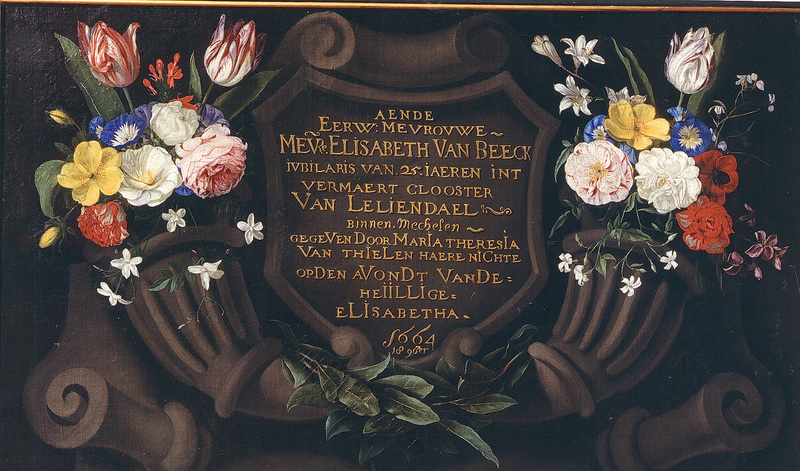 AENDE
EERW: MEVROVWE~
MEVR: ELISABETH VAN BEECK
IVBILARIS VAN. 25. IAEREN INT
VERMAERT CLOOSTER
VAN LELIENDAEL
BINNEN. Mechelen~
GEGEVEN DOOR MARIA THERESIA
VAN THIELEN HAERE NICHTE
OPDEN AVONDT VANDE:
HEIILLIGE:
ELISABETHA.
1664
18 9ber